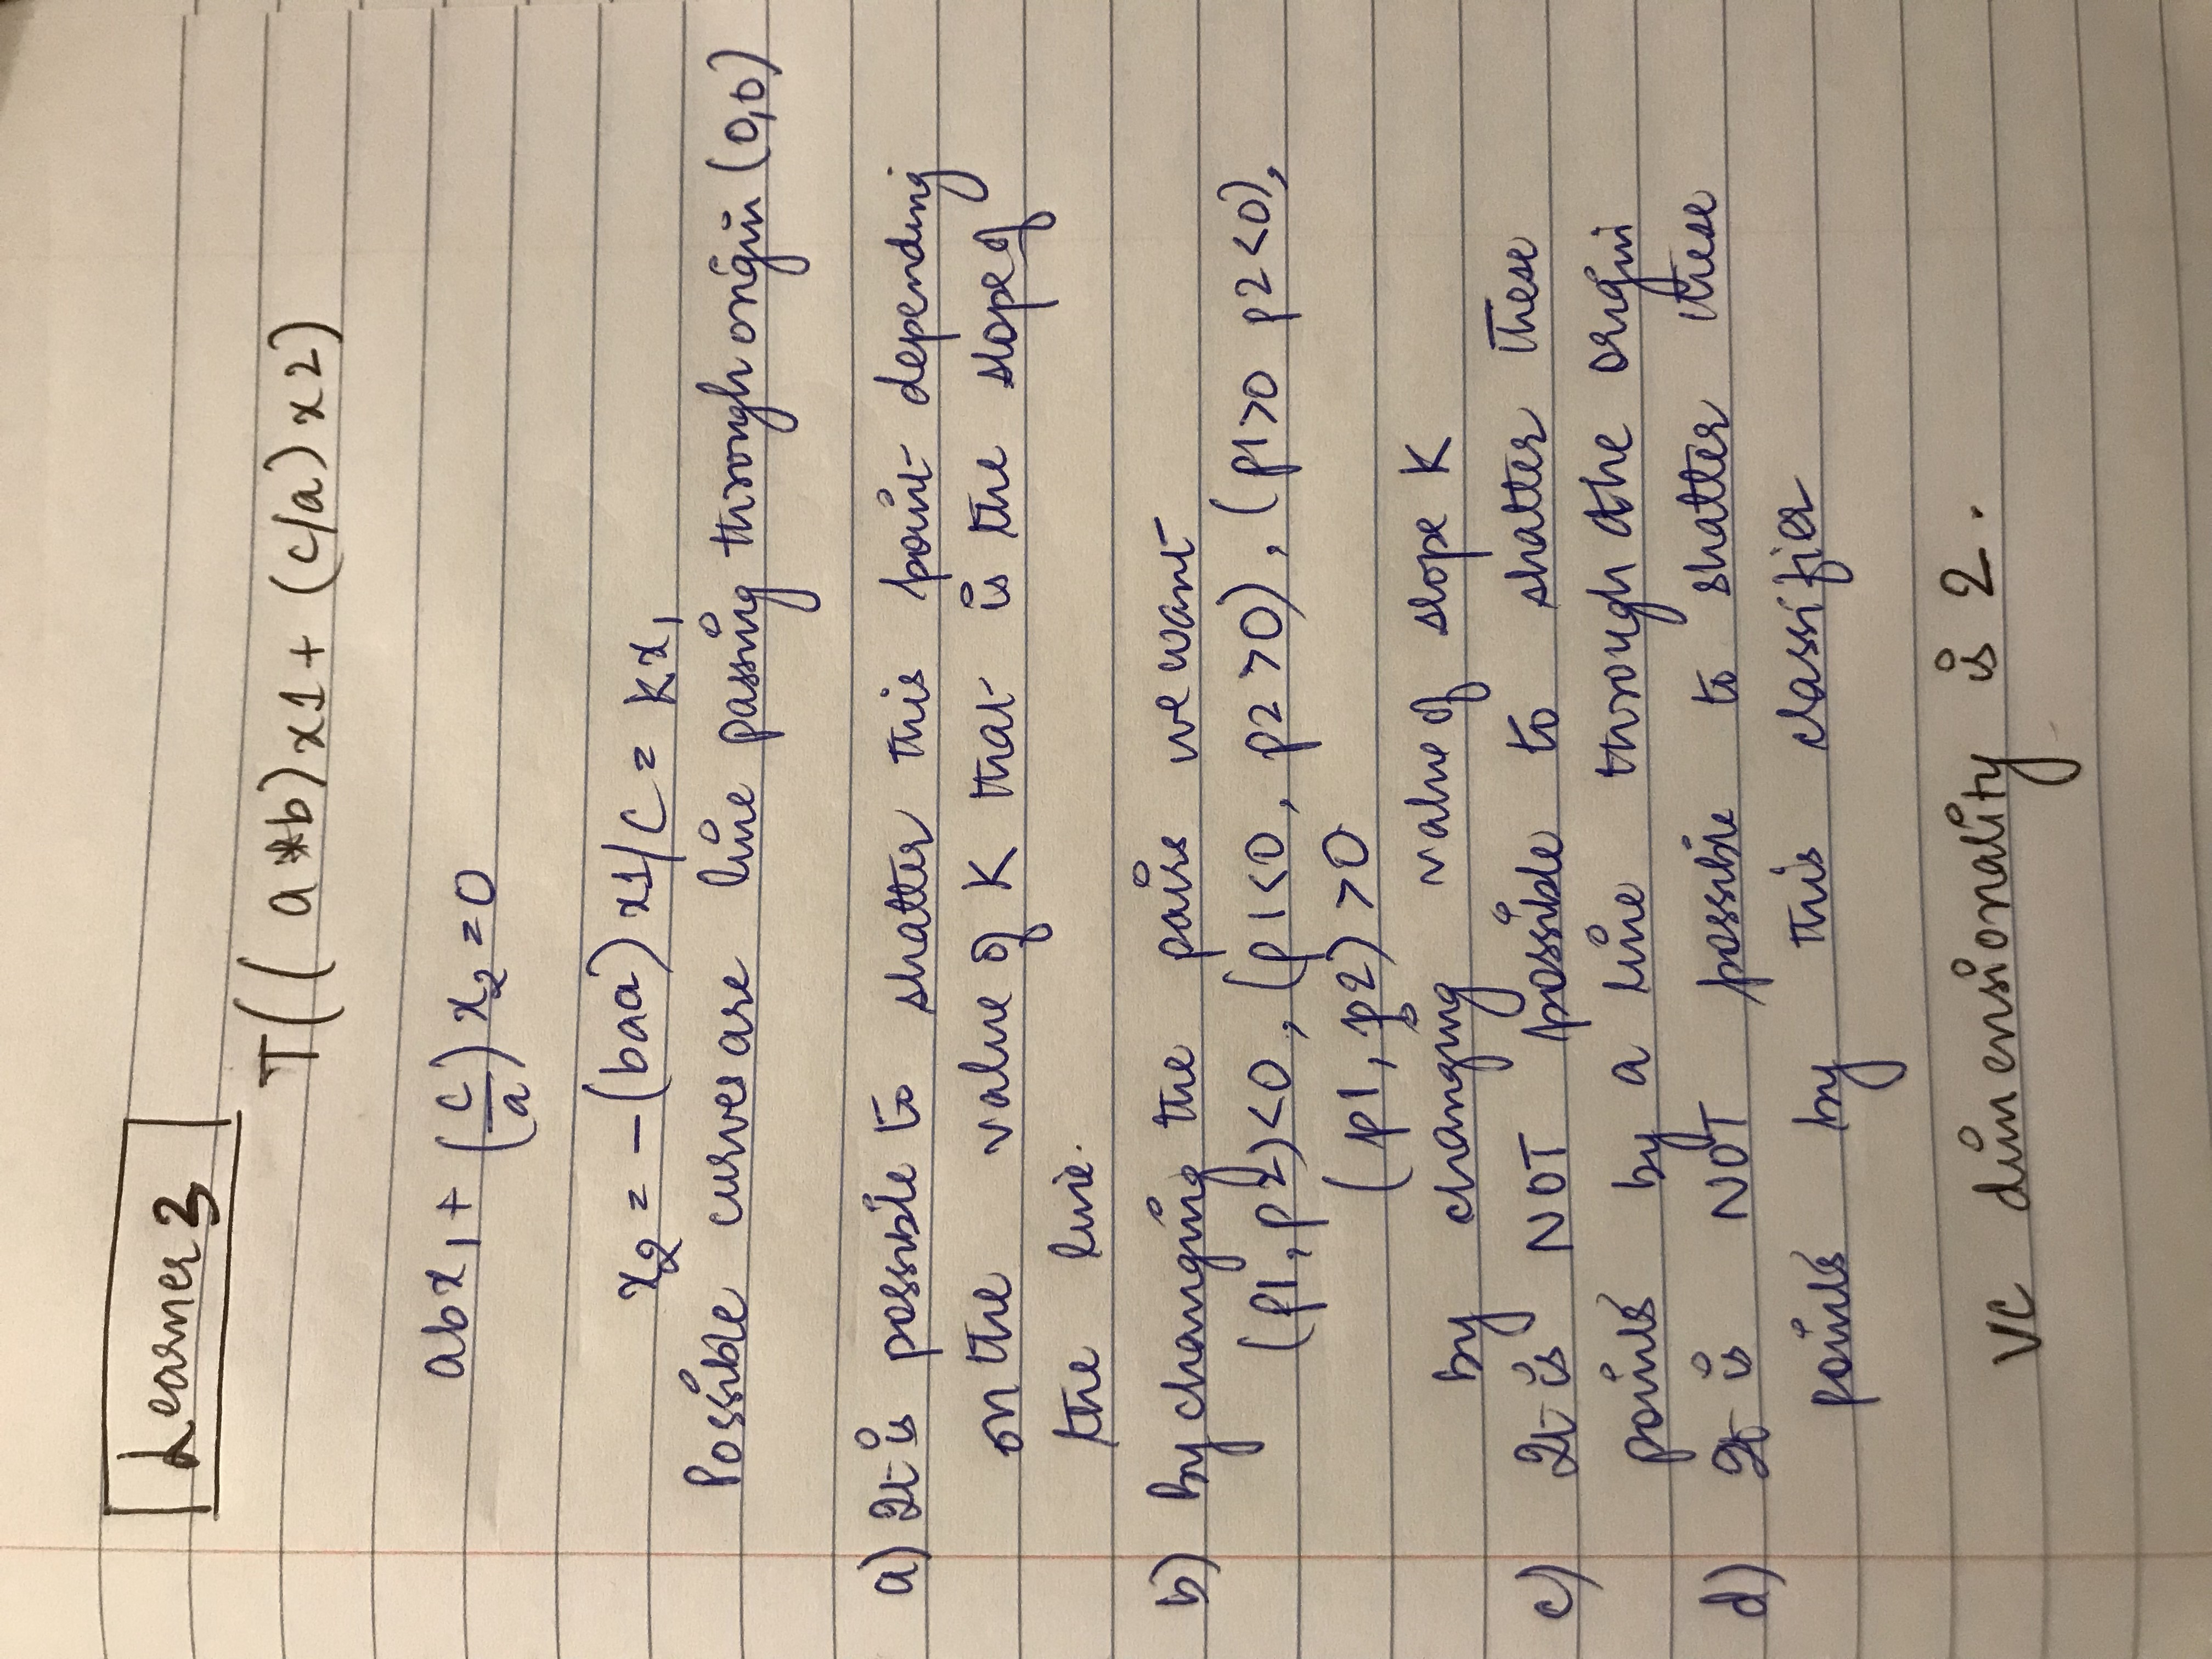 Learner 3
T((a*b)x1 + (c/a)x2)
abx₁ + (c/a) x₂ = 0
x₂ = -(baa)x1/c = kx₁
Possible curves are line passing through origin (0,0)
a) It is possible to shatter this point depending
on the value of K that is the slope of
the line.
b) By changing the pairs we want
(p1, p2)<0, (p1<0, p2>0), (p1>0 p2<0),
(p1, p2) >0
by changing value of slope K
c) It is NOT possible to shatter these
points by a line through the origin
d) It is NOT possible to shatter these
points by this classifier
VC dimensionality is 2.